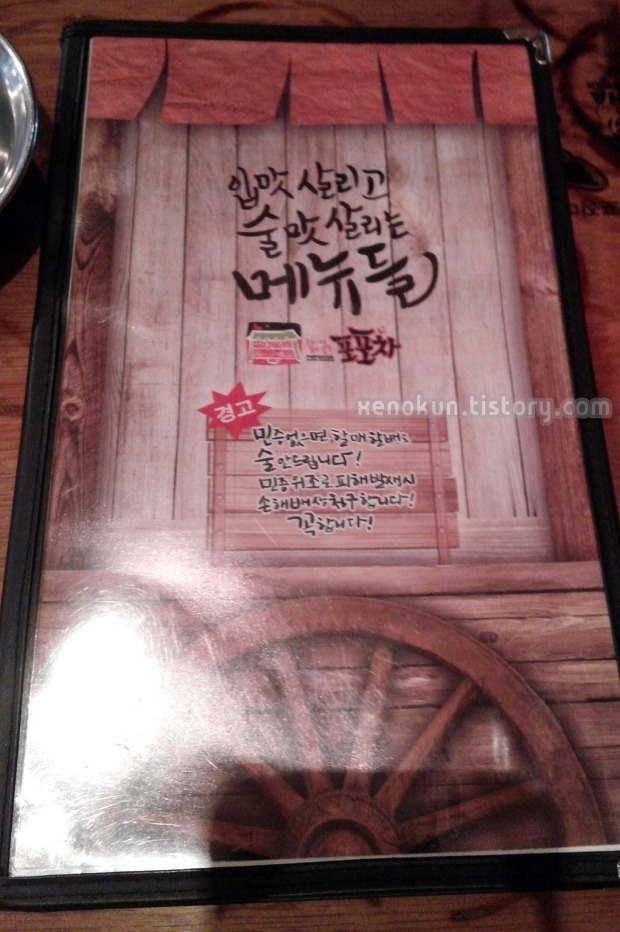 입맛 살리고
술맛 살리는
메뉴들
포포차
xenokun.tistory.com
경고
민증없으면, 할매할배도
술안드립니다!
민증위조로 피해발생시
손해배상청구합니다!
꼭합니다!